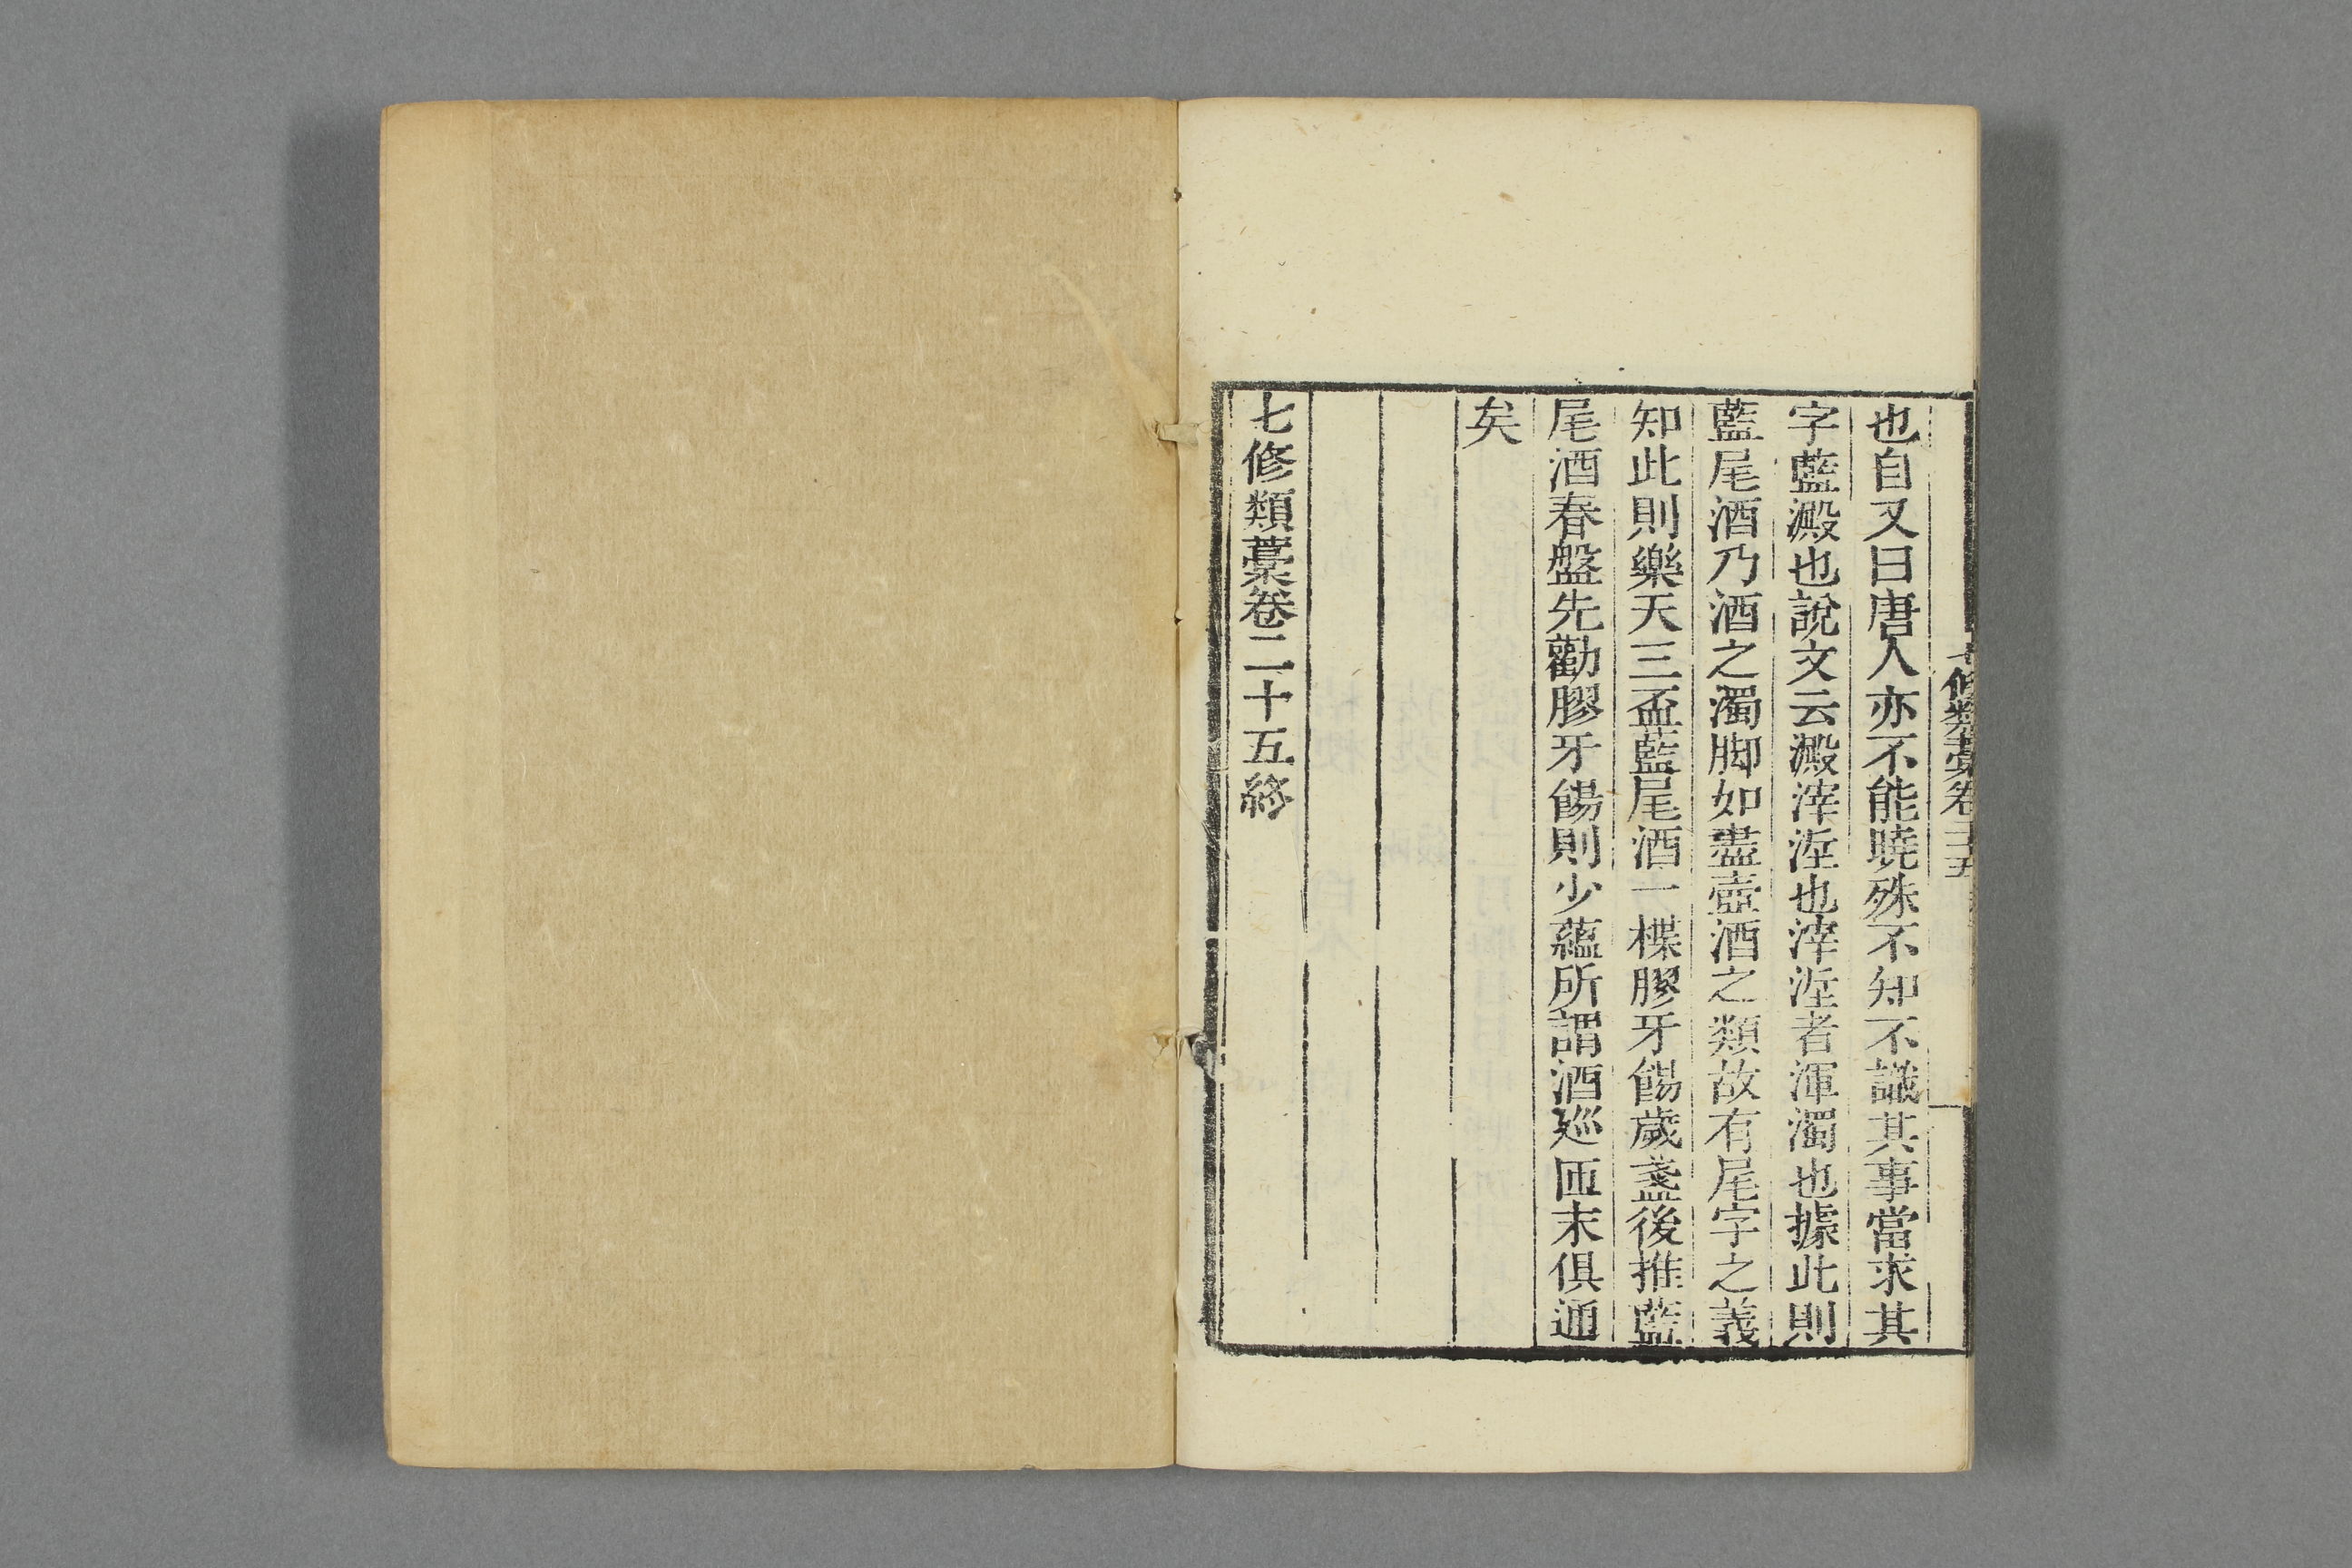 七修類藁卷二十五
也自又曰唐人亦不能曉殊不知不識其事當求其
字藍澱也說文云澱滓淫也滓淫者渾濁也據此則
藍尾酒乃酒之濁脚如盡壺酒之類故有尾字之義
知此則樂天三盃藍尾酒一楪膠牙餳歲盞後推藍
尾酒春盤先勸膠牙餳則少蘊所謂酒巡匝末俱通
矣
七修類藁卷二十五終